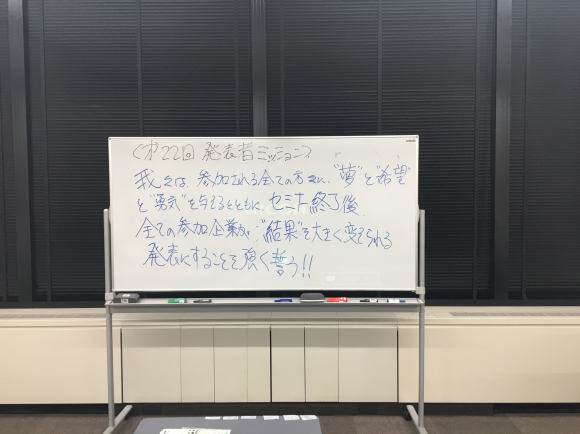 <第22回 発表者ミッション>
我々は、参加される全ての方々に、"夢"と"希望"
と"勇気"を与えるとともに、セミナー終了後、
全ての参加企業が、"結果"を大きく変えられる
発表にすることを強く誓う!!